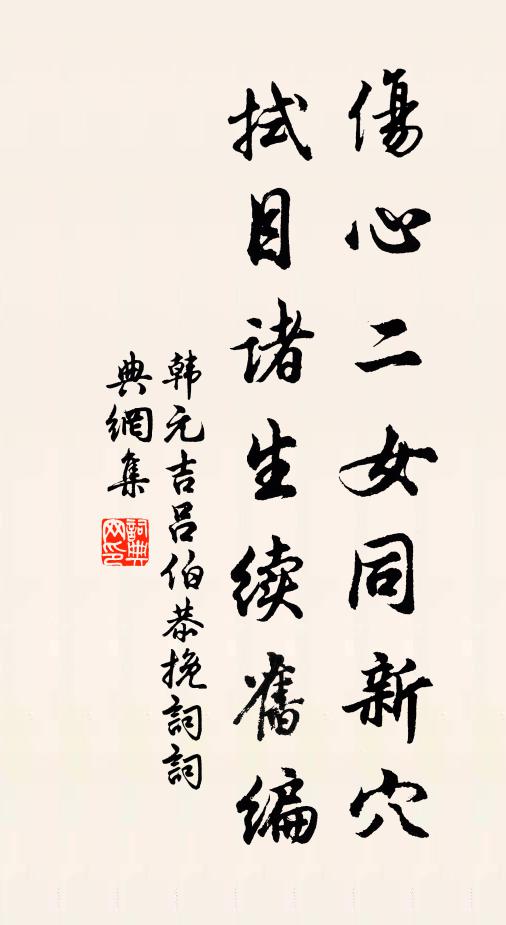 傷心二女同新穴
拭目諸生续舊编
韩元吉吕伯恭挽詞詞
典網集
詞典
网印